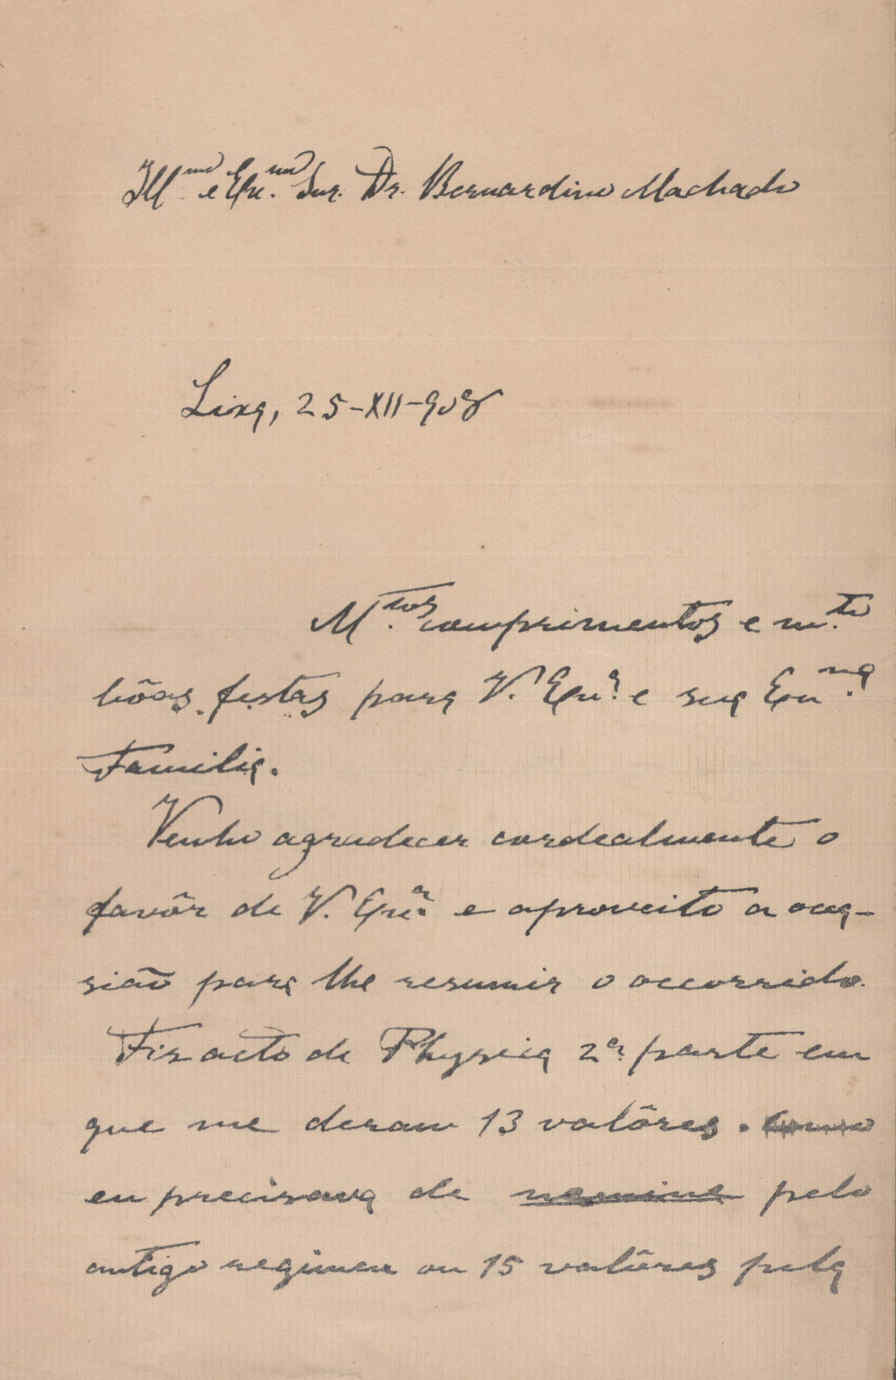 Ill.mo e Exm.mo Snr. Dr. Bernardino Machado
Lixa, 25-XII-908
M.tos comprimentos e m.to
bôas festas para V. Ex.a e sua Exm.ma
Familia.
Venho agradecer cordealmente o
favôr de V. Ex.a e aproveito a oca-
sião para lhe resumir o occorrido.
Fiz acto de Physica 2.a parte em
que me deram 13 valôres. Como
eu precisava de nemine pelo
antigo regimen ou 15 valôres pela